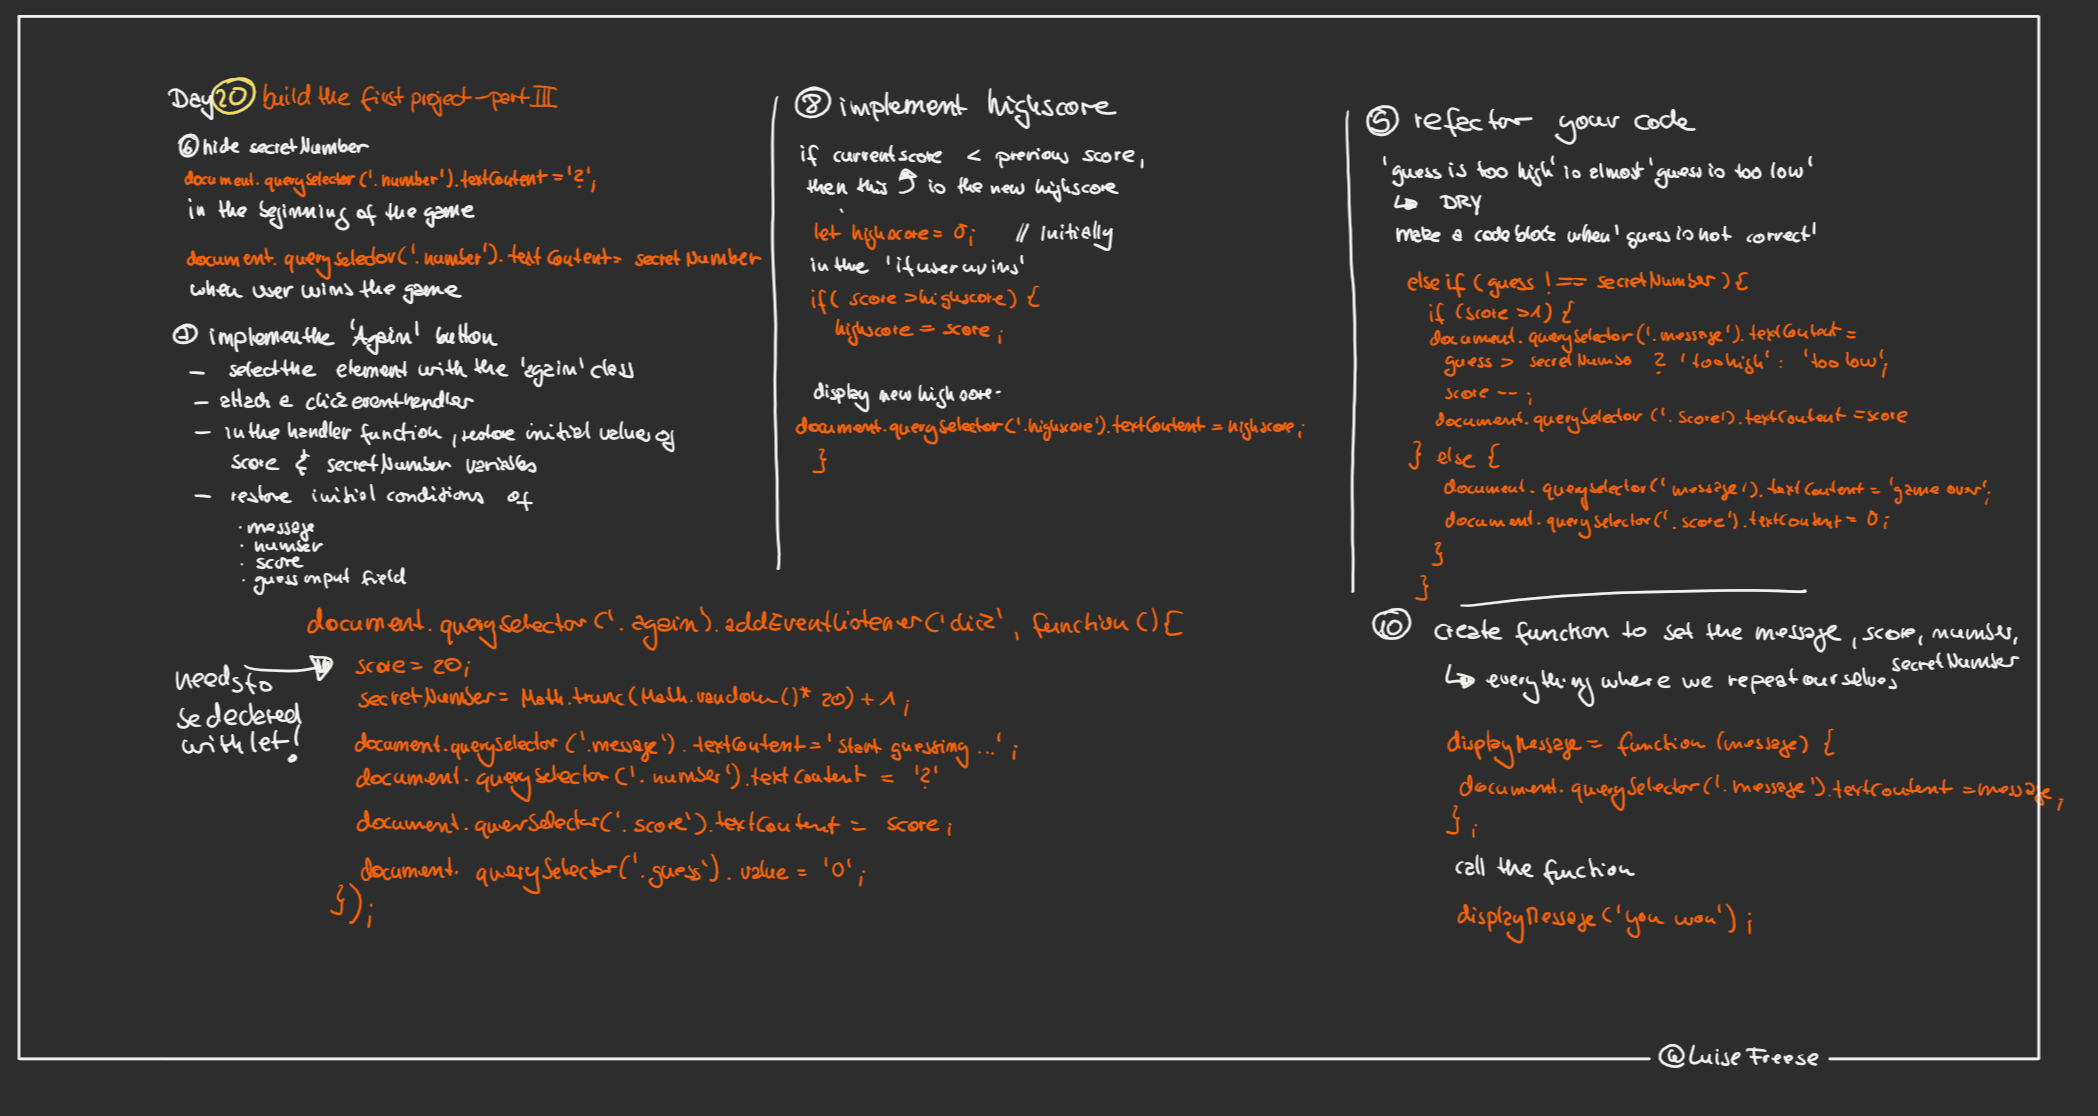 Day 20 build the first project - part III
⑥ hide secretNumber
document.querySelector('.number').textContent = '?';
in the beginning of the game
document.querySelector('.number').textContent = secretNumber
when user wins the game
⑦ implement the 'Again' button
— select the element with the 'again' class
— attach a click event handler
— in the handler function, restore initial values of
score & secretNumber variables
— restore initial conditions of
· message
· number
· score
· guess input field
document.querySelector('.again').addEventListener('click', function () {
needs to
be declared
with let!
score = 20;
secretNumber = Math.trunc(Math.random()* 20) + 1;
document.querySelector('.message').textContent = 'Start guessing ...';
document.querySelector('.number').textContent = '?'
document.querSelector('.score').textContent = score;
document.querySelector('.guess').value = '0';
});
⑧ implement highscore
if currentscore < previous score,
then this is the new highscore
let highscore = 0; // initially
in the 'if user wins'
if( score > highscore) {
highscore = score;
display new highscore-
document.querySelector('.highscore').textContent = highscore;
}
⑨ refactor your code
'guess is too high' is almost 'guess is too low'
↳ DRY
make a code block when 'guess is not correct'
else if (guess !== secretNumber) {
if (score >1) {
document.querySelector('.message').textContent =
guess > secretNumber ? 'too high' : 'too low';
score --;
document.querySelector('.score').textContent = score
} else {
document.querySelector('message').textContent = 'game over';
document.querySelector('.score').textContent = 0;
}
}
⑩ create function to set the message, score, number,
secretNumber
↳ everything where we repeat ourselves
displayMessage = function (message) {
document.querySelector('.message').textContent = message;
};
call the function
displayMessage('you won');
@LuiseFreese